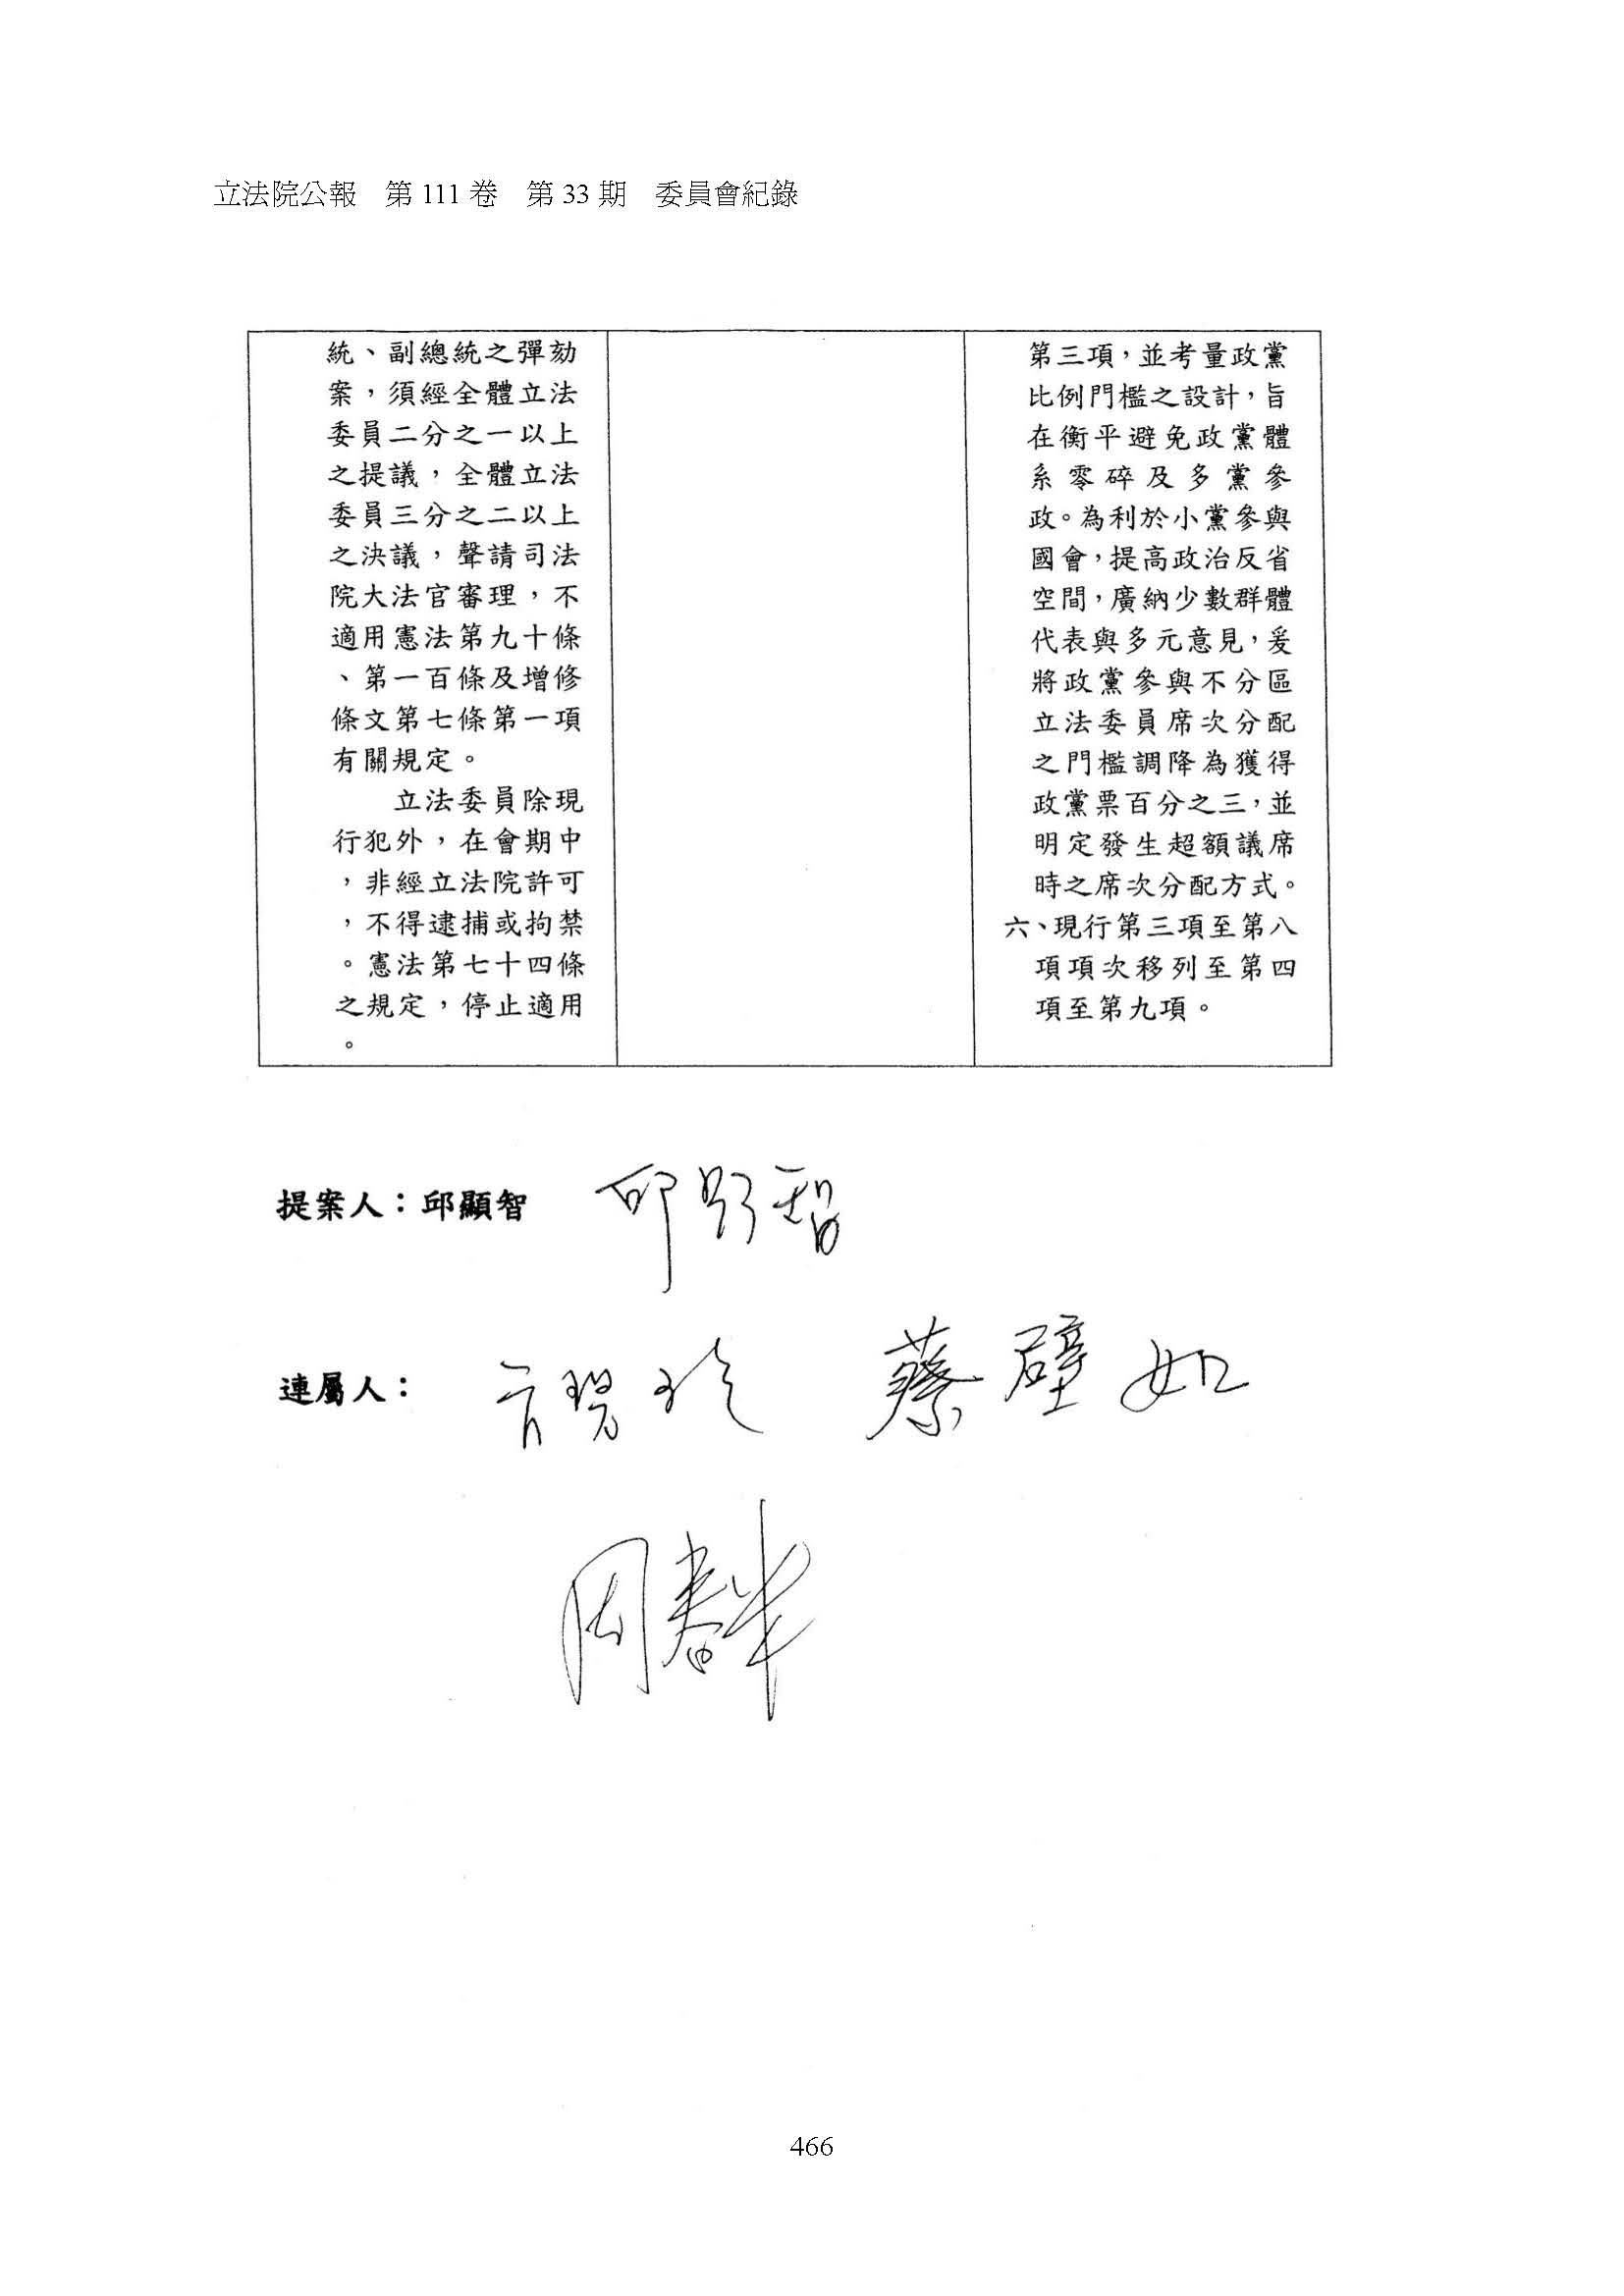 立法院公報　第 111 卷　第 33 期　委員會紀錄
統、副總統之彈劾
案，須經全體立法
委員二分之一以上
之提議，全體立法
委員三分之二以上
之決議，聲請司法
院大法官審理，不
適用憲法第九十條
、第一百條及增修
條文第七條第一項
有關規定。
立法委員除現
行犯外，在會期中
，非經立法院許可
，不得逮捕或拘禁
。憲法第七十四條
之規定，停止適用
。
第三項，並考量政黨
比例門檻之設計，旨
在衡平避免政黨體
系零碎及多黨參
政。為利於小黨參與
國會，提高政治反省
空間，廣納少數群體
代表與多元意見，爰
將政黨參與不分區
立法委員席次分配
之門檻調降為獲得
政黨票百分之三，並
明定發生超額議席
時之席次分配方式。
六、現行第三項至第八
項項次移列至第四
項至第九項。
提案人：邱顯智　邱顯智
連屬人：
蔡壁如
466